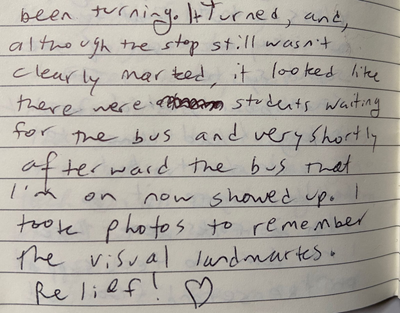 been turning. It turned, and,
although the stop still wasn't
clearly marked, it looked like
there were students waiting
for the bus and very shortly
afterward the bus that
I'm on now showed up. I
took photos to remember
the visual landmarks.
Relief! ♡